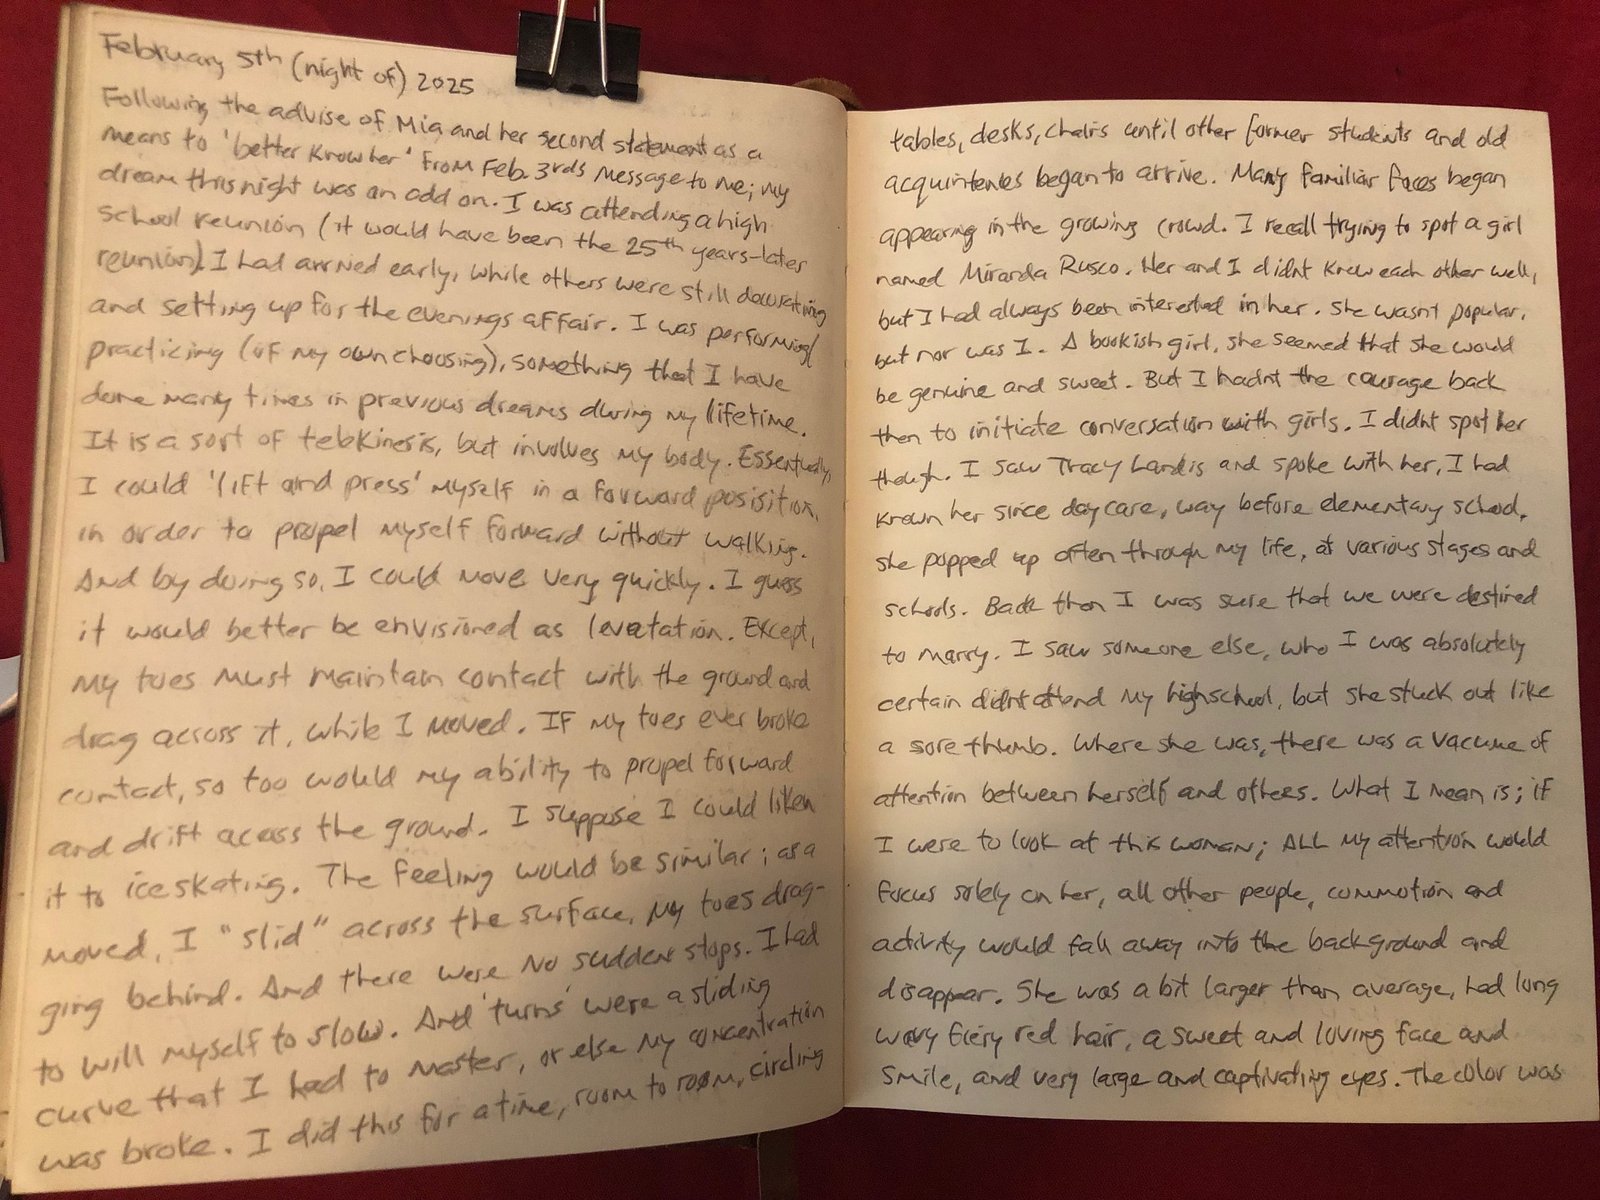 February 5th (night of) 2025
Following the advise of Mia and her second statement as a
means to 'better know her' from Feb. 3rds message to me; my
dream this night was an add on. I was attending a high
school reunion (it would have been the 25th years-later
reunion). I had arrived early, while others were still decorating
and setting up for the evenings affair. I was performing/
practicing (of my own choosing), something that I have
done many times in previous dreams during my lifetime.
It is a sort of telekinesis, but involves my body. Essentually,
I could 'lift and press' myself in a forward posisition,
in order to propel myself forward without walking.
And by doing so, I could move very quickly. I guess
it would better be envisioned as levatation. Except,
my toes must maintain contact with the ground and
drag across it, while I moved. If my toes ever broke
contact, so too would my ability to propel forward
and drift across the ground. I suppose I could liken
it to iceskating. The feeling would be similar; as a
moved, I "slid" across the surface, my toes drag-
ging behind. And there were no sudden stops. I had
to will myself to slow. And 'turns' were a sliding
curve that I had to master, or else my concentration
was broke. I did this for a time, room to room, circling
tables, desks, chairs until other former students and old
acquintences began to arrive. Many familiar faces began
appearing in the growing crowd. I recall trying to spot a girl
named Miranda Rusco. Her and I didnt know each other well,
but I had always been interested in her. She wasnt popular,
but nor was I. A bookish girl, she seemed that she would
be genuine and sweet. But I hadnt the courage back
then to initiate conversation with girls. I didnt spot her
though. I saw Tracy Landis and spoke with her, I had
known her since daycare, way before elementary school.
she popped up often through my life, at various stages and
schools. Back then I was sure that we were destined
to marry. I saw someone else, who I was absolutely
certain didnt attend my highschool, but she stuck out like
a sore thumb. Where she was, there was a vacume of
attention between herself and others. What I mean is; if
I were to look at this woman; ALL my attention would
focus solely on her, all other people, commotion and
activity would fall away into the background and
disappear. She was a bit larger than average, had long
wavy fiery red hair, a sweet and loving face and
smile, and very large and captivating eyes. The color was